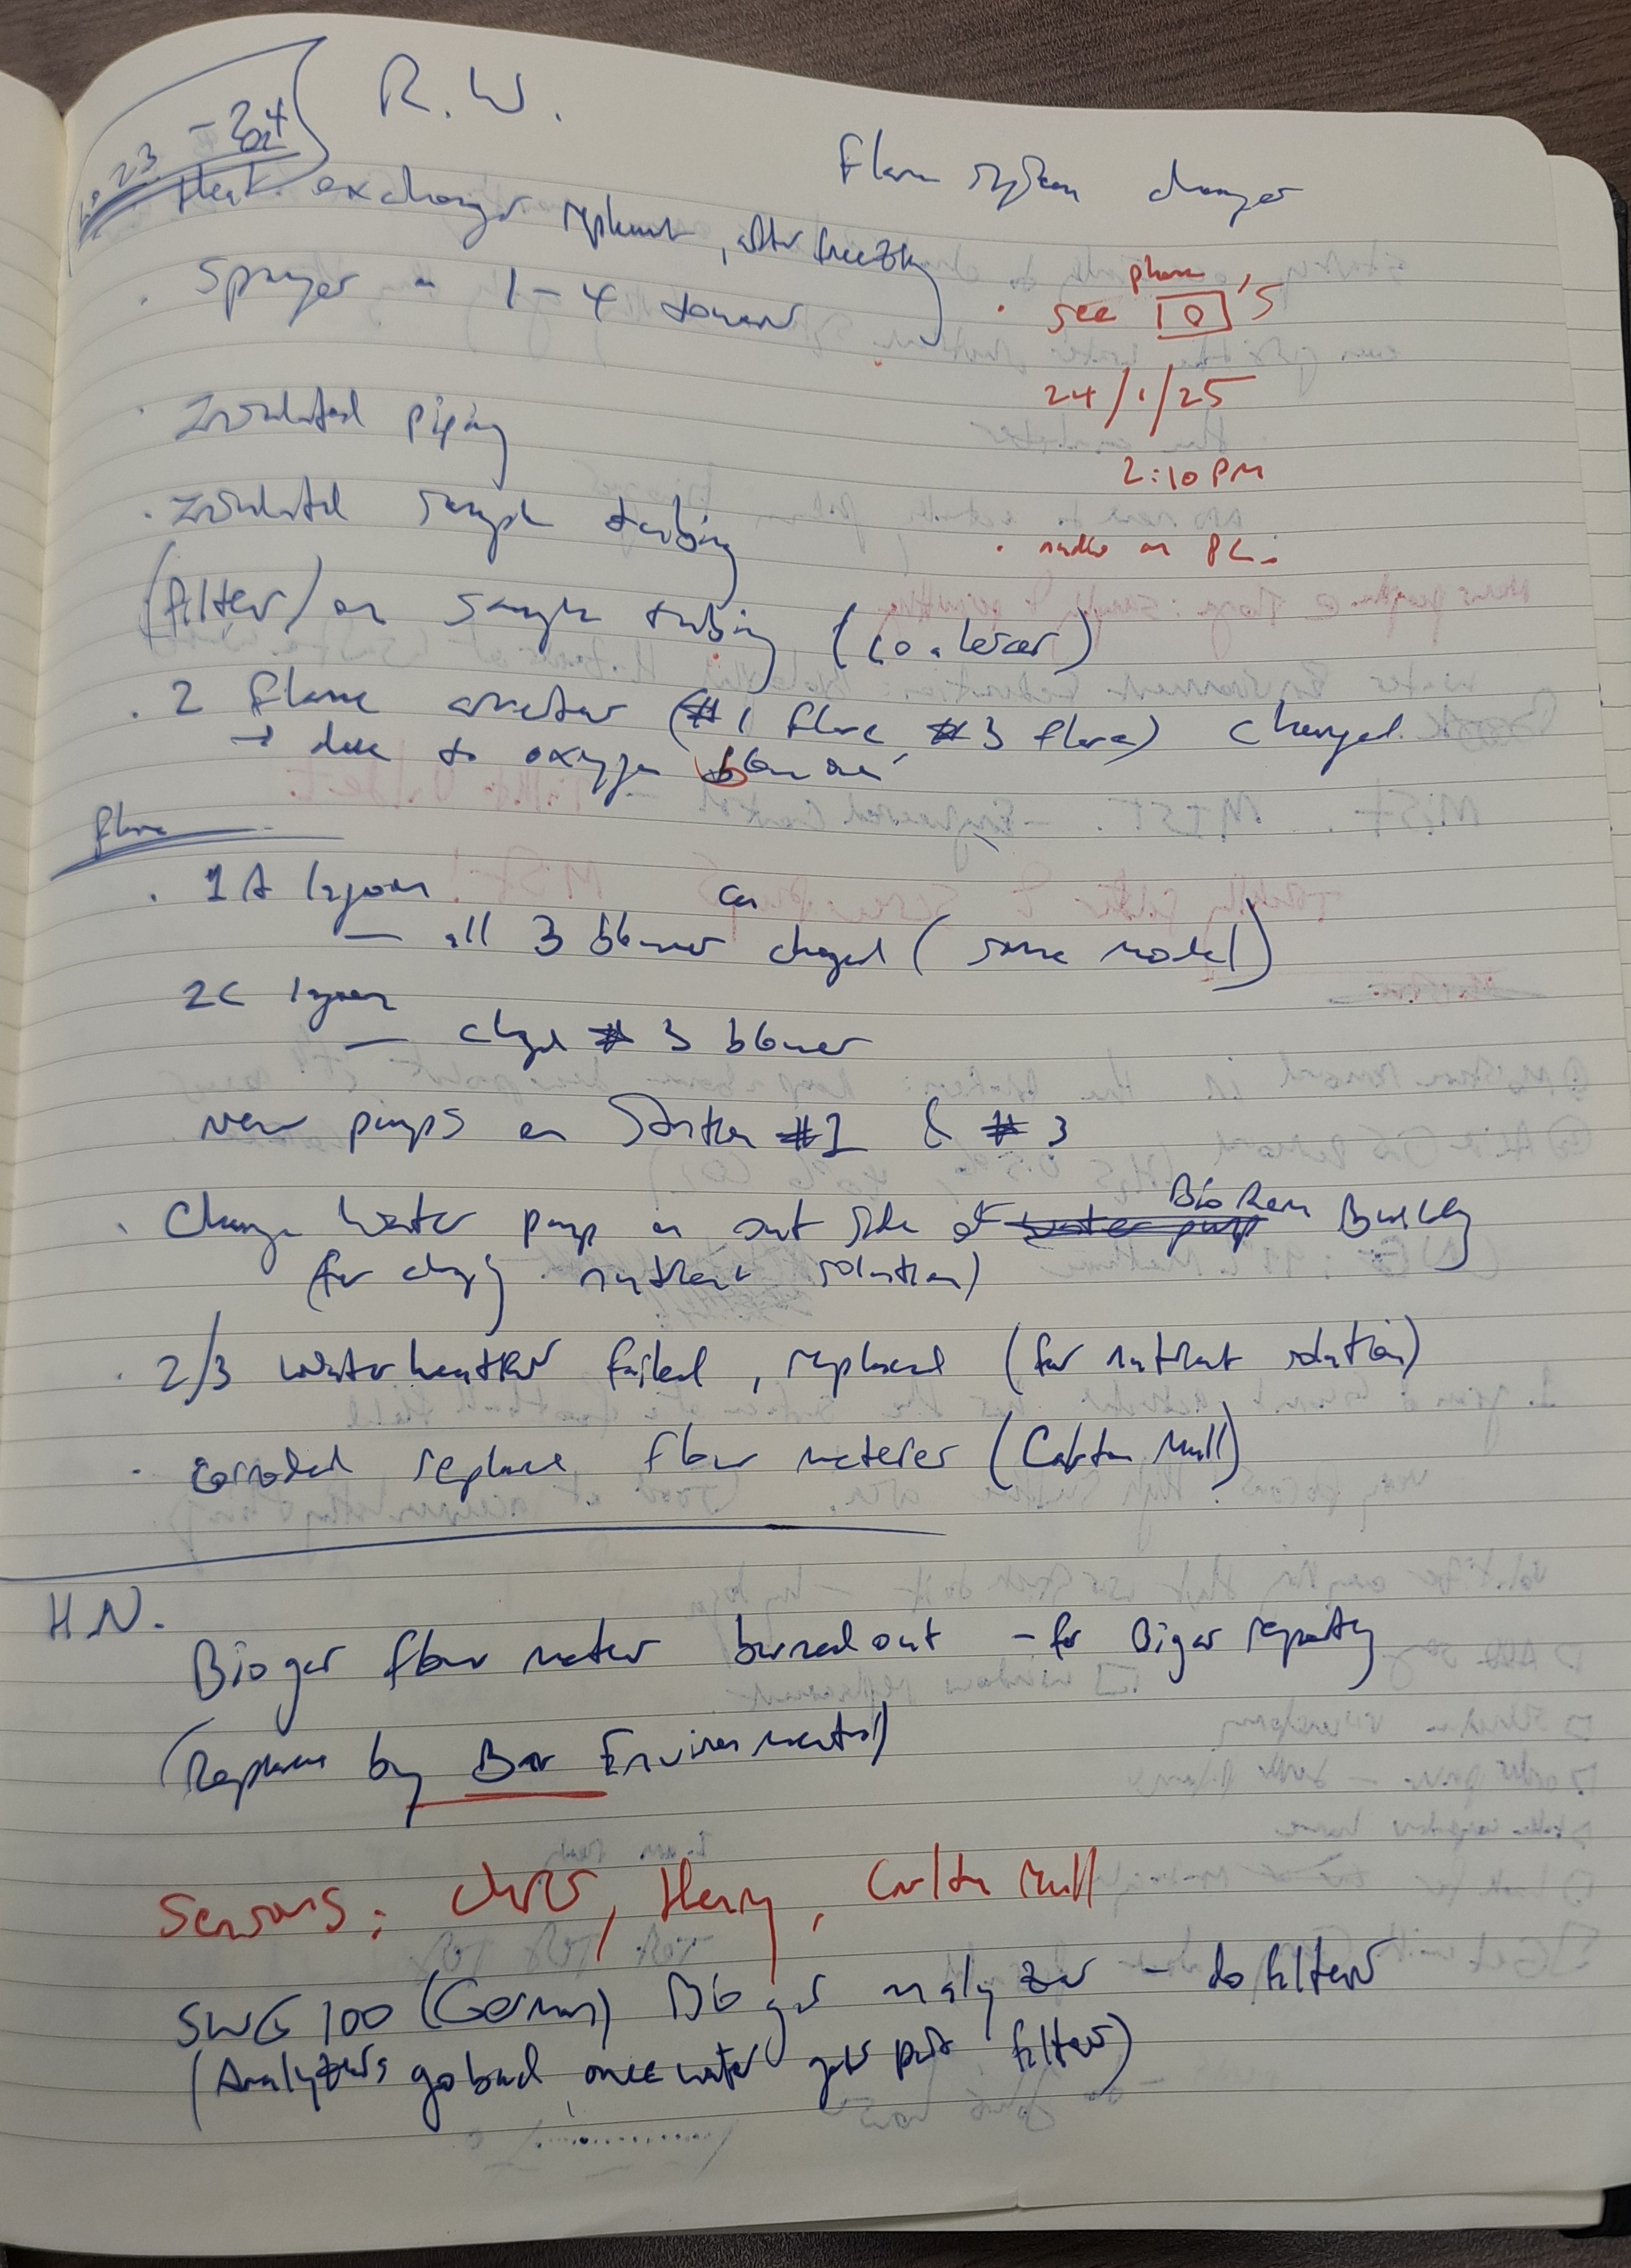 R.W.
23 - 24
Flare system changes
Heat exchanger replacement, after freezing
· Sprayer on 1-4 towers
phone
· see 's
24/1/25
2:10 PM
· Insulated piping
· Insulated sample tubing
· on PC.
(filter) on sample tubing (coalescer)
· 2 flame arrestors (#1 flare, #3 flare) changed
→ due to oxygen blower
flare
· 1A lagoon
— all 3 blower changed (same model)
2C lagoon
— chgd #3 blower
New pumps on Station #1 & #3
· Change water pump on out side of BioRem Building
(for nutrient solution)
· 2/3 water heater failed, replaced (for nutrient solution)
· corroded replace flow meteres (Carlton Mull)
H.N.
Biogas flow meter burned out - for Biogas reporting
(Replace by Environmental)
Sensors: Chris, Henry, Carlton Mull
SWG 100 (German) Biogas analyzer - do filters
(Analyzers go bad once water gets past filter)